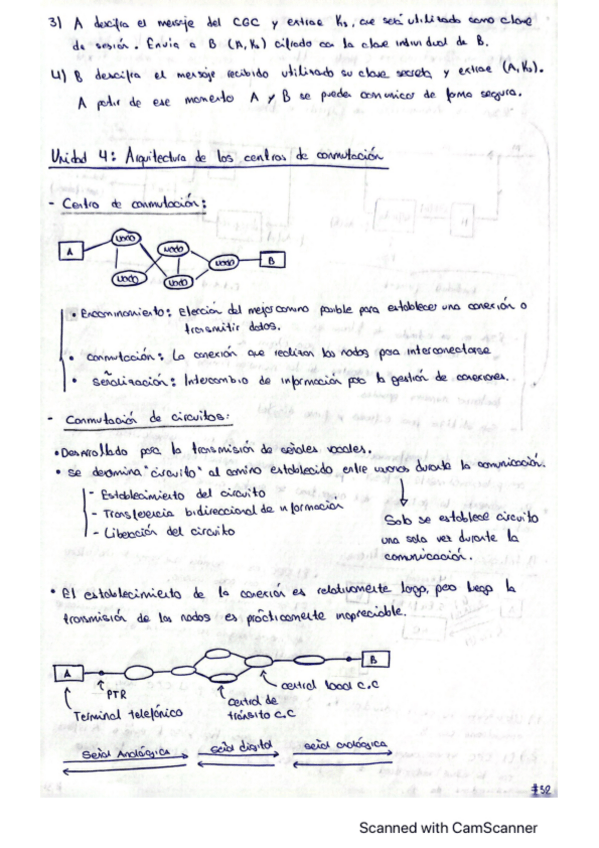 3) A descifra el mensaje del CGC y extrae Ks, que será utilizado como clave
de sesión. Envía a B (A, Ks) cifrado con la clave individual de B.
4) B descifra el mensaje recibido utilizado su clave secreta y extrae (A, Ks).
A patir de ese momento A y B se pueden comunicar de forma segura.
Unidad 4: Arquitectura de los centros de conmutación
- Centro de conmutación:
A
nodo
nodo
nodo
B
nodo
nodo
• Encaminamiento: Elección del mejor camino posible para establecer una conexión o
transmitir datos.
• conmutación: La conexión que realizan los nodos para interconectarse
• Señalización: Intercambio de información para la gestión de conexiones.
- Conmutación de circuitos:
• Desarrollado para la transmisión de señales vocales.
• se denomina "circuito" al camino establecido entre usuarios durante la comunicación.
- Establecimiento del circuito
- Transferencia bidireccional de información
- Liberación del circuito
Solo se establece circuito
una sola vez durante la
comunicación.
• El establecimiento de la conexión es relativamente largo, pero luego la
transmisión de los nodos es prácticamente inapreciable.
A
B
PTR
Terminal telefónico
central de
tránsito C.C
central local C.C
Señal Analógica
señal digital
señal analógica
32
Scanned with CamScanner